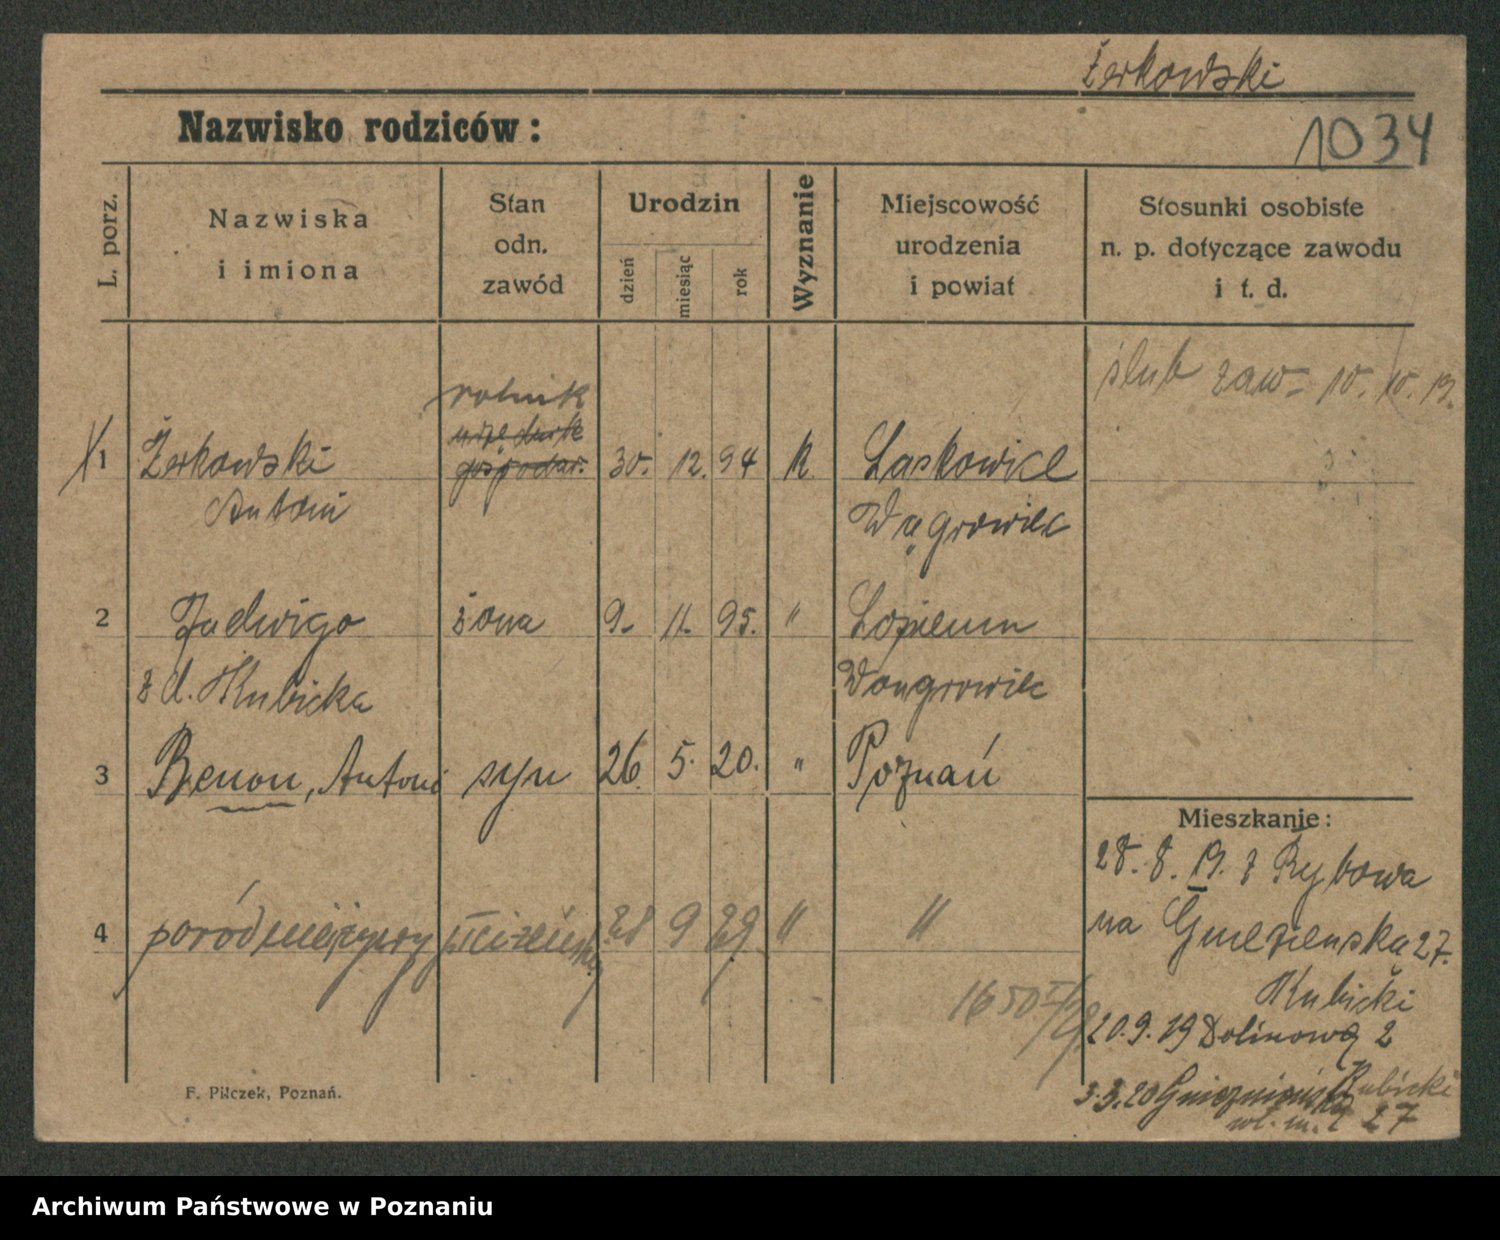 Żerkowski
Nazwisko rodziców:
1034
L. porz.
Nazwiska
i imiona
Stan
odn.
zawód
Urodzin
dzień
miesiąc
rok
Wyznanie
Miejscowość
urodzenia
i powiat
Stosunki osobiste
n. p. dotyczące zawodu
i t. d.
ślub zaw- 10. 10. 19.
rolnik
urzędnik
1 Żerkowski gospodar. 30. 12. 94 k. Laskowice
Antoni Wągrowiec
2 Jadwiga żona 9. 11. 95. "
z d. Kubicka Wongrowiec
3 Benon, Antoni syn 26. 5. 20. " Poznań
Mieszkanie:
28. 8. 19. z Rybowa
4 poród nieżywy płci żeńskiej 28 9 29 " "
na Gnezienska 27.
Kubicki
1650
20. 9. 19 Dolinową 2
Kubicki
3. 3. 20 27
F. Pilczek, Poznań.
Archiwum Państwowe w Poznaniu